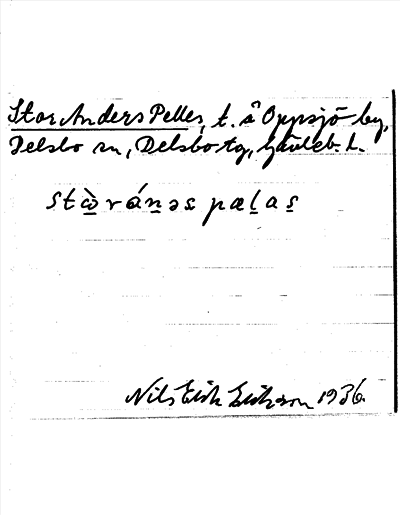 Stor Anders Pelles, t. å Oppsjö by,
Delsbo sn, Delsbo tg, Gävleb. l.
stὼ̱ráṉəs pæḻas̱
Nils Erik Erikson 1936.